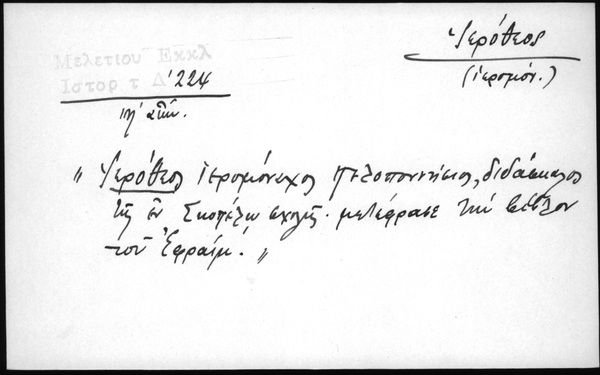 Ἱερόθεος
(ἱερομόν.)
Μελετίου Εκκλ
Ιστορ τ Δ' 224
ιη' αἰών.
„ Ἱερόθεος ἱερομόναχος Πελοποννήσιος, διδάσκαλος
τῆς ἐν Σκοπέλῳ σχολῆς. μετέφρασε τὴν βίβλον
τοῦ Ἐφραίμ. „